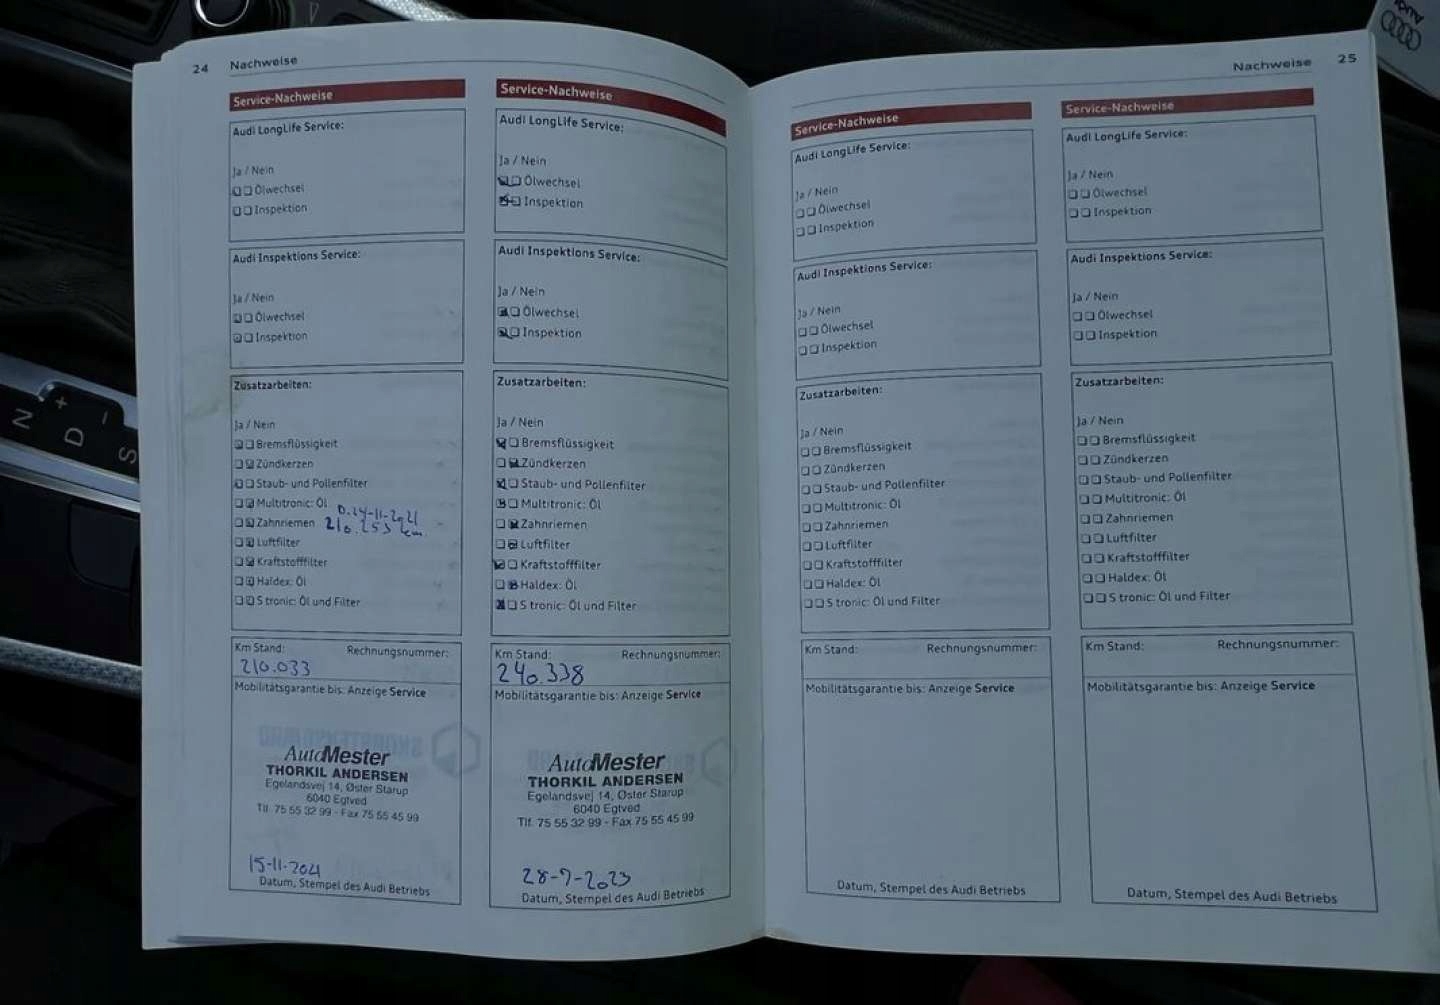 24 Nachweise
Service-Nachweise
Audi LongLife Service:
Ja / Nein
Ölwechsel
Inspektion
Audi Inspektions Service:
Ja / Nein
Ölwechsel
Inspektion
Zusatzarbeiten:
Ja / Nein
Bremsflüssigkeit
Zündkerzen
Staub- und Pollenfilter
Multitronic: Öl
D. 24-11-2021
Zahnriemen 210.253 km
Luftfilter
Kraftstofffilter
Haldex: Öl
S tronic: Öl und Filter
Km Stand: Rechnungsnummer:
210.033
Mobilitätsgarantie bis: Anzeige Service
AutoMester
THORKIL ANDERSEN
Egelandsvej 14, Øster Starup
6040 Egtved
Tlf. 75 55 32 99 - Fax 75 55 45 99
15-11-2021
Datum, Stempel des Audi Betriebs
Service-Nachweise
Audi LongLife Service:
Ja / Nein
Ölwechsel
Inspektion
Audi Inspektions Service:
Ja / Nein
Ölwechsel
Inspektion
Zusatzarbeiten:
Ja / Nein
Bremsflüssigkeit
Zündkerzen
Staub- und Pollenfilter
Multitronic: Öl
Zahnriemen
Luftfilter
Kraftstofffilter
Haldex: Öl
S tronic: Öl und Filter
Km Stand: Rechnungsnummer:
240.338
Mobilitätsgarantie bis: Anzeige Service
AutoMester
THORKIL ANDERSEN
Egelandsvej 14, Øster Starup
6040 Egtved
Tlf. 75 55 32 99 - Fax 75 55 45 99
28-7-2023
Datum, Stempel des Audi Betriebs
Nachweise 25
Service-Nachweise
Audi LongLife Service:
Ja / Nein
Ölwechsel
Inspektion
Audi Inspektions Service:
Ja / Nein
Ölwechsel
Inspektion
Zusatzarbeiten:
Ja / Nein
Bremsflüssigkeit
Zündkerzen
Staub- und Pollenfilter
Multitronic: Öl
Zahnriemen
Luftfilter
Kraftstofffilter
Haldex: Öl
S tronic: Öl und Filter
Km Stand: Rechnungsnummer:
Mobilitätsgarantie bis: Anzeige Service
Datum, Stempel des Audi Betriebs
Service-Nachweise
Audi LongLife Service:
Ja / Nein
Ölwechsel
Inspektion
Audi Inspektions Service:
Ja / Nein
Ölwechsel
Inspektion
Zusatzarbeiten:
Ja / Nein
Bremsflüssigkeit
Zündkerzen
Staub- und Pollenfilter
Multitronic: Öl
Zahnriemen
Luftfilter
Kraftstofffilter
Haldex: Öl
S tronic: Öl und Filter
Km Stand: Rechnungsnummer:
Mobilitätsgarantie bis: Anzeige Service
Datum, Stempel des Audi Betriebs
Audi
N
+
D
−
S